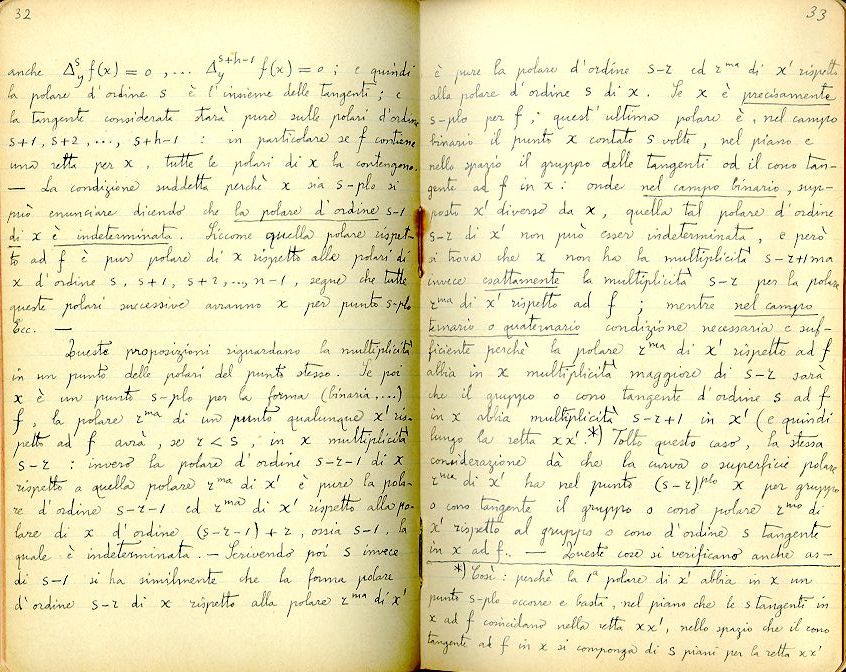 32
anche Δ_y^s f(x) = 0 , ... Δ_y^{s+h-1} f(x) = 0 ; e quindi
la polare d'ordine s è l'insieme delle tangenti ; e
la tangente considerata starà pure sulle polari d'ordine
s+1, s+2, ..., s+h-1 : in particolare se f contiene
una retta per x , tutte le polari di x la contengono.
— La condizione suddetta perchè x sia s-plo si
può enunciare dicendo che la polare d'ordine s-1
di x è indeterminata. Siccome quella polare rispet-
to ad f è pur polare di x rispetto alle polari di
x d'ordine s, s+1, s+2, ..., n-1 , segue che tutte
queste polari successive avranno x per punto s-plo
Ecc. —
Queste proposizioni riguardano la multiplicità
in un punto delle polari del punto stesso. Se poi
x è un punto s-plo per la forma (binaria, ...)
f , la polare r^ma di un punto qualunque x' ris-
petto ad f avrà , se r < s , in x multiplicità
s-r : invero la polare d'ordine s-r-1 di x
rispetto a quella polare r^ma di x' è pure la pola-
re d'ordine s-r-1 ed r^ma di x' rispetto alla po-
lare di x d'ordine (s-r-1)+r , ossia s-1 , la
quale è indeterminata. — Scrivendo poi s invece
di s-1 si ha similmente che la forma polare
d'ordine s-r di x rispetto alla polare r^ma di x'
33
è pure la polare d'ordine s-r ed r^ma di x' rispetto
alla polare d'ordine s di x. Se x è precisamente
s-plo per f , quest'ultima polare è , nel campo
binario il punto x contato s volte , nel piano e
nello spazio il gruppo delle tangenti od il cono tan-
gente ad f in x : onde nel campo binario , sup-
posto x' diverso da x , quella tal polare d'ordine
s-r di x' non può esser indeterminata , e però
si trova che x non ha la multiplicità s-r+1ma
invece esattamente la multiplicità s-r per la polare
r^ma di x' rispetto ad f ; mentre nel campo
ternario o quaternario condizione necessaria e suf-
ficiente perchè la polare r^ma di x' rispetto ad f
abbia in x multiplicità maggiore di s-r sarà
che il gruppo o cono tangente d'ordine s ad f
in x abbia multiplicità s-r+1 in x' (e quindi
lungo la retta xx'.*) Tolto questo caso, la stessa
considerazione dà che la curva o superficie polare
r^ma di x' ha nel punto (s-r)^plo x per gruppo
o cono tangente il gruppo o cono polare r^mo di
x' rispetto al gruppo o cono d'ordine s tangente
in x ad f. — Queste cose si verificano anche as-
*) Così : perchè la 1ª polare di x' abbia in x un
punto s-plo occorre e basta , nel piano che le s tangenti in
x ad f coincidano nella retta xx', nello spazio che il cono
tangente ad f in x si componga di s piani per la retta xx'